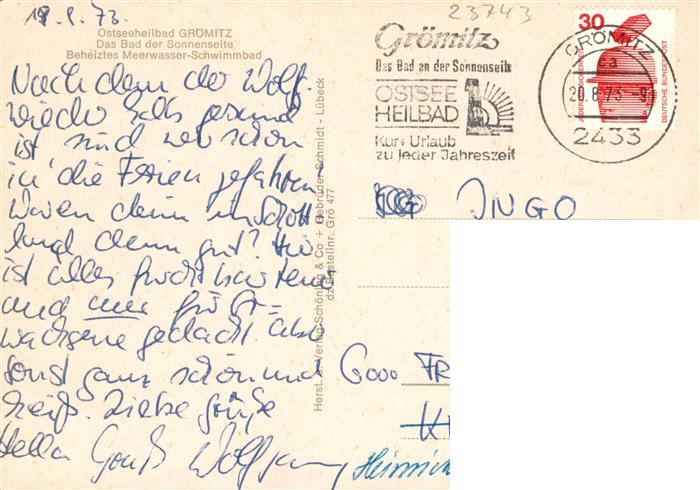 18.8.73.
23743
Ostseeheilbad GRÖMITZ
Das Bad der Sonnenseite
Beheiztes Meerwasser-Schwimmbad
Nachdem der Wolf-
wieder halb gesund
ist sind wir schon
in die Ferien gefahren!
Waren denn in Schott-
land denn gut? Hier
ist alles furchtbar teuer
und nur für Er=
wachsene gedacht aber
sonst ganz schön und
heiß. Liebe Grüße
Hella Gruß Wolfgang
Herst. u. Verlag Schöning & Co + Gebrüder Schmidt - Lübeck
Bestellnr. Grö 477
Grömitz
Das Bad an der Sonnenseite
OSTSEE
HEILBAD
Kur+Urlaub
zu jeder Jahreszeit
GRÖMITZ
20.8.73-9
2433
30
DEUTSCHE BUNDESPOST
INGO
6000 FR
Heinrich